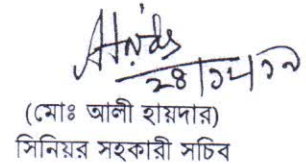 ২৪/১২/১৭
(মোঃ আলী হায়দার)
সিনিয়র সহকারী সচিব